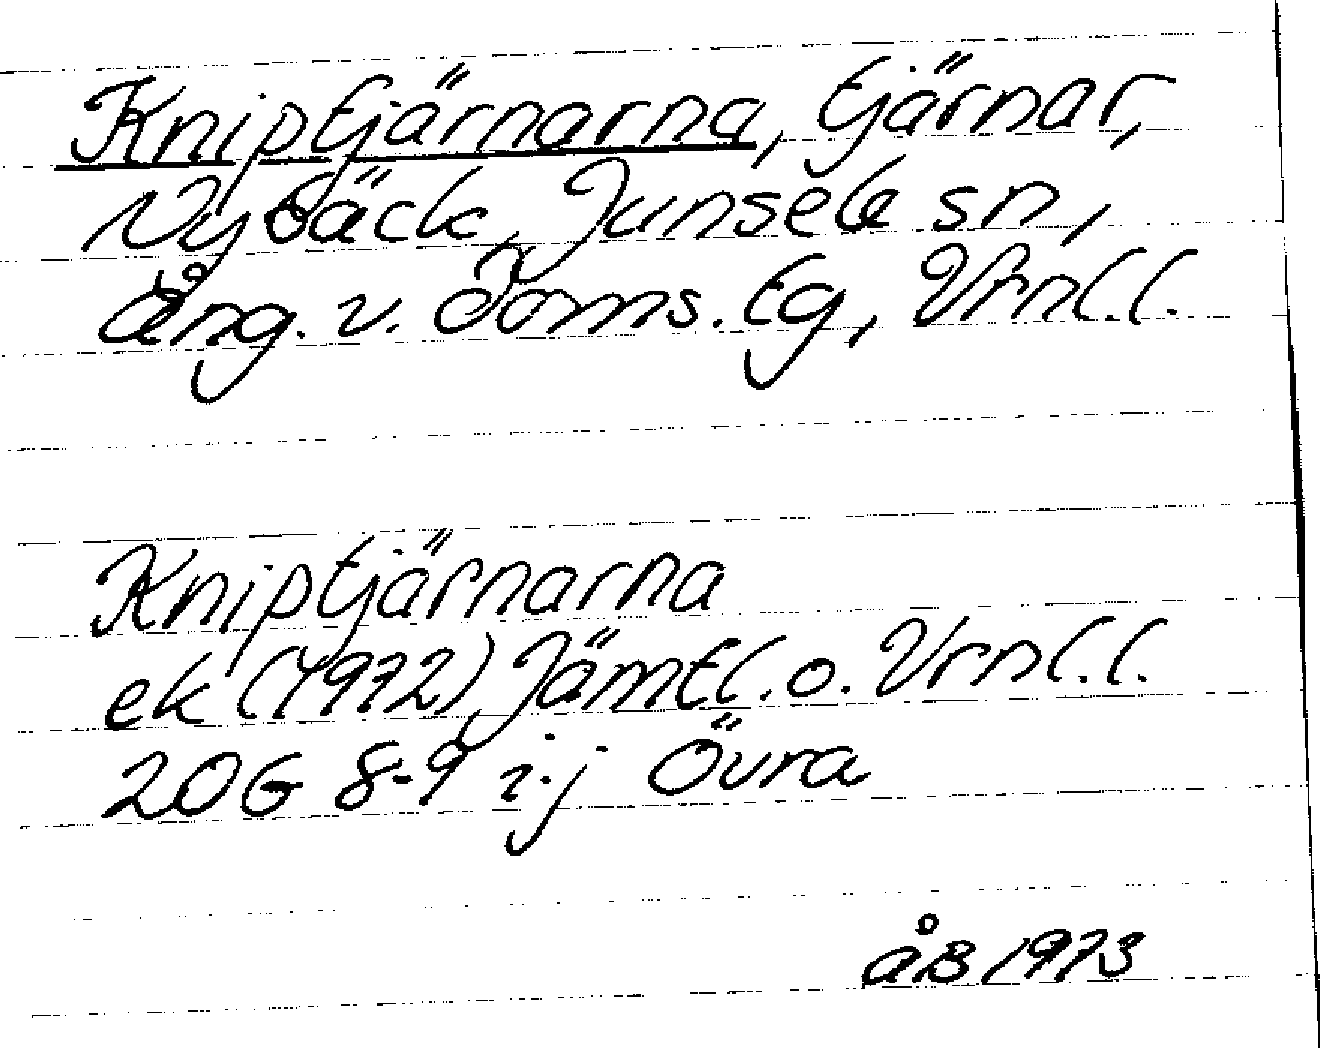 Kniptjärnarna, tjärnar,
Nybäck, Junsele sn,
Ång. v. doms. tg, Vrnl. l.
Kniptjärnarna
ek (1972), Jämtl. o. Vrnl. l.
20G 8-9 i-j Övra
åB 1973